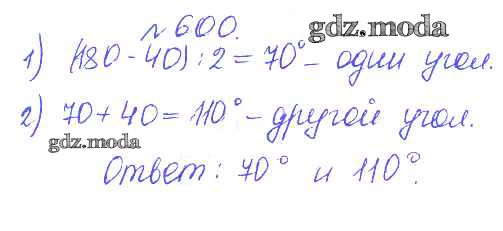 № 600.
gdz.moda
1) (180 - 40) : 2 = 70° - один угол.
2) 70 + 40 = 110° - другой угол.
gdz.moda
Ответ: 70° и 110°.